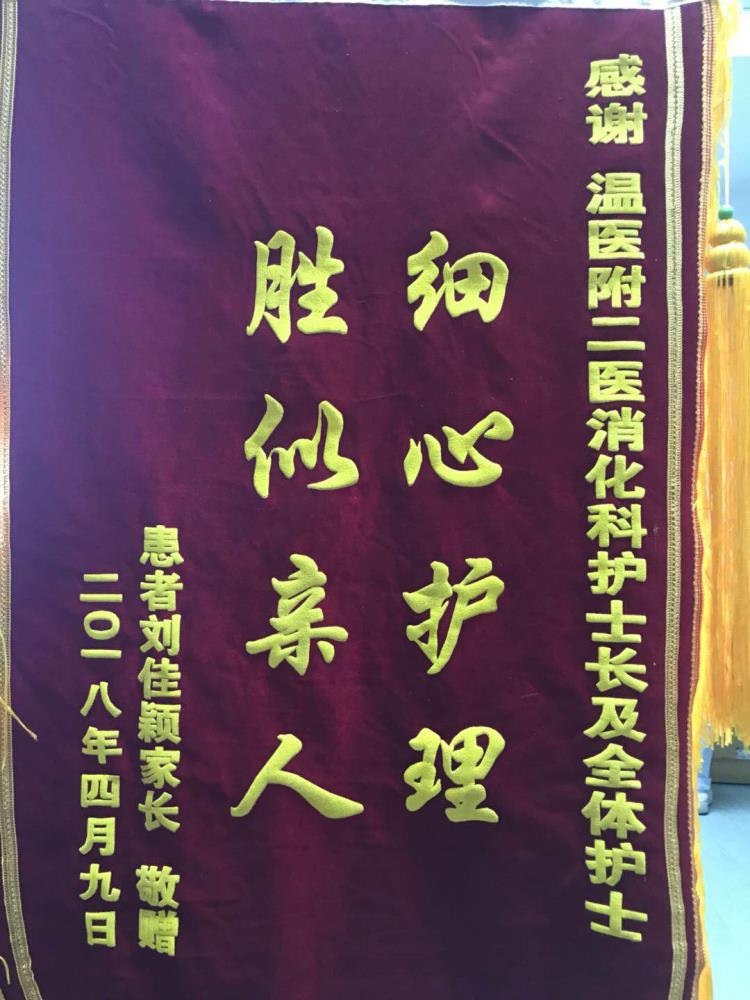 感谢 温医附二医消化科护士长及全体护士
细心护理
胜似亲人
患者刘佳颖家长 敬赠
二〇一八年四月九日